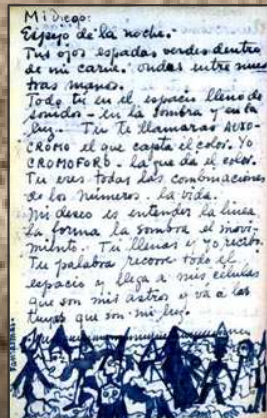 Mi Diego:
Espejo de la noche.
Tus ojos espadas verdes dentro
de mi carne. ondas entre nues
tras manos.
Todo tú en el espacio lleno de
sonidos - en la sombra y en la
luz. Tú te llamarás AUXO-
CROMO el que capta el color. Yo
CROMOFORO - la que da el color.
Tu eres todas las combinaciones
de los números. la vida.
mi deseo es entender la línea
la forma la sombra el movi-
miento. Tú llenas y yo recibo.
Tu palabra recorre todo el
espacio y llega a mis células
que son mis astros y vá a las
tuyas que son mi luz.